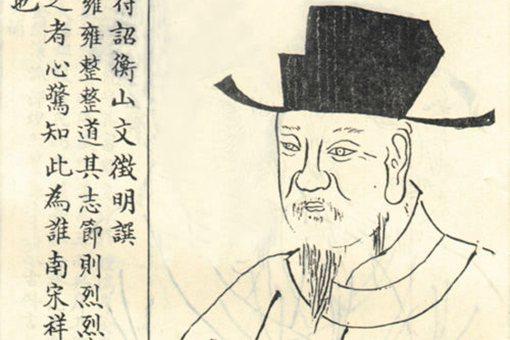 待詔衡山文徵明譔
雍雍整整道其志節則烈烈
之者心驚知此為誰南宋祥
也